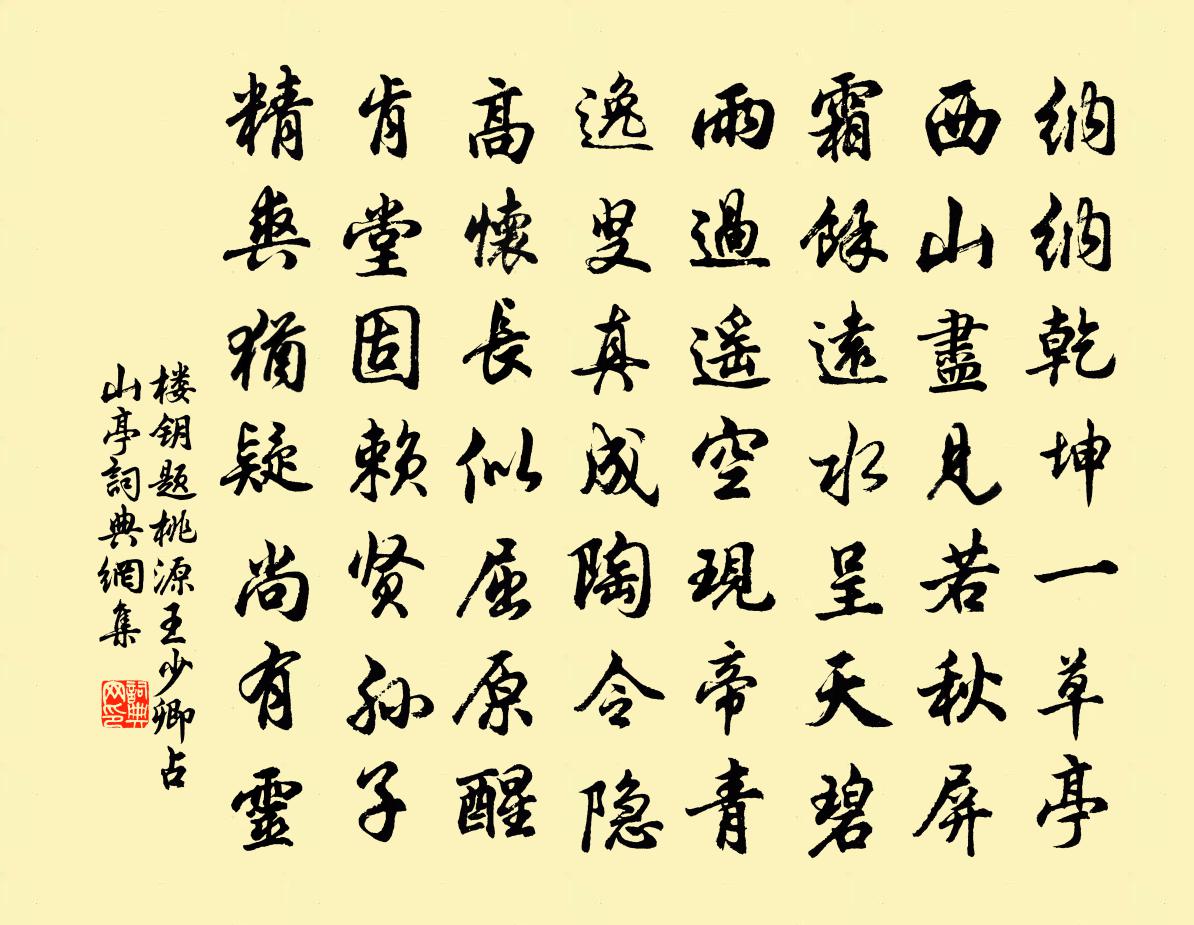 纳纳乾坤一草亭
西山盡見若秋屏
霜餘遠水呈天碧
雨過遥空現帝青
逸叟真成陶令隐
高懷長似屈原醒
肯堂固赖贤孙子
精爽猶疑尚有靈
楼钥题桃源王少卿占
山亭詞典網集
詞典
网印